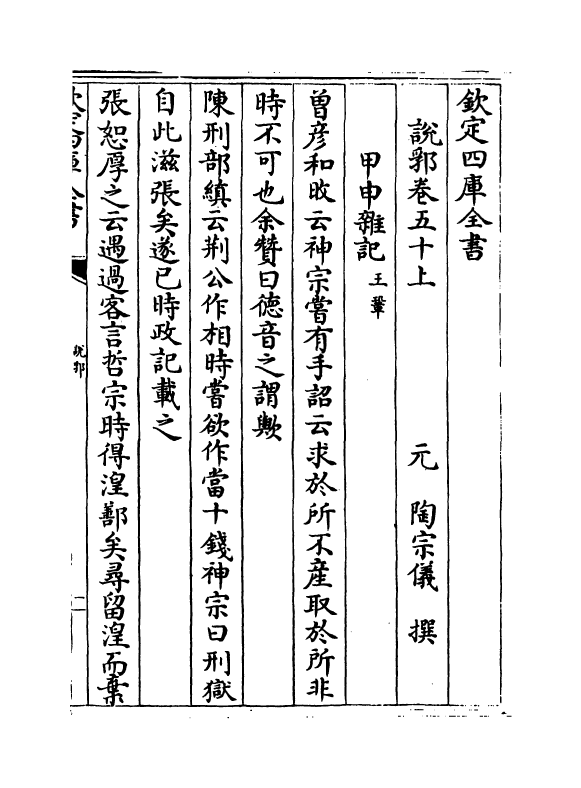 欽定四庫全書
說郛卷五十上
元 陶宗儀 撰
甲申雜記 王鞏
曽彦和旼云神宗嘗有手詔云求於所不産取於所非
時不可也余贊曰德音之謂歟
陳刑部縝云荆公作相時嘗欲作當十錢神宗曰刑獄
自此滋張矣遂已時政記載之
張恕厚之云遇過客言哲宗時得湟鄯矣尋留湟而棄
說郛